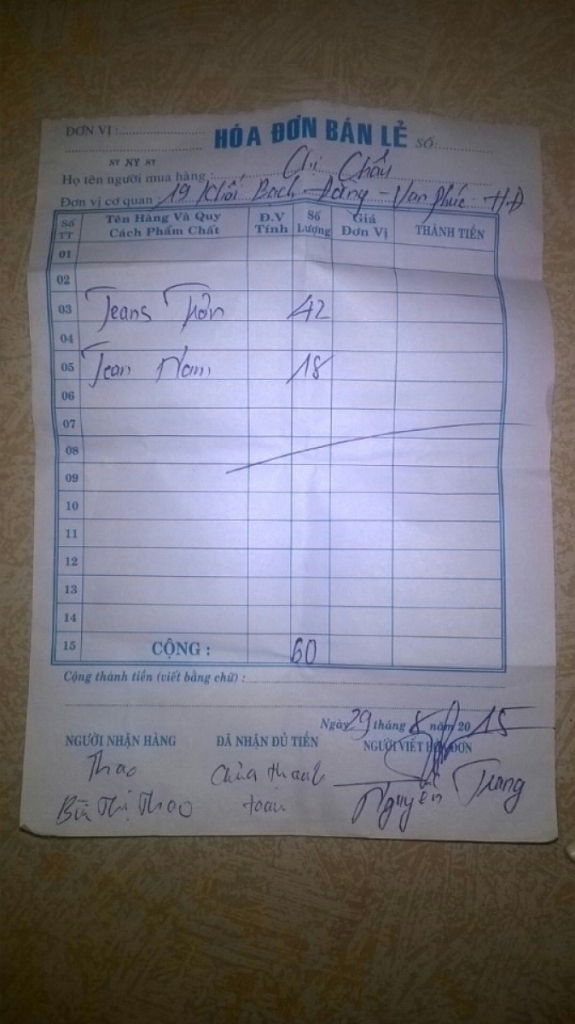 ĐƠN VỊ :
HÓA ĐƠN BÁN LẺ SỐ:
Họ tên người mua hàng : Chị Châu
Đơn vị cơ quan 19 Khối Bạch Đằng - Vạn Phúc - HĐ
Số TT Tên Hàng Và Quy Cách Phẩm Chất Đ.V Tính Số Lượng Giá Đơn Vị THÀNH TIỀN
01
02
03 Jeans Trơn 42
04
05 Jean Nam 18
06
07
08
09
10
11
12
13
14
15 CỘNG : 60
Cộng thành tiền (viết bằng chữ) :
Ngày 29 tháng 8 năm 2015
NGƯỜI NHẬN HÀNG ĐÃ NHẬN ĐỦ TIỀN NGƯỜI VIẾT HÓA ĐƠN
Thao chưa thanh
Bùi Thị Thao toán Nguyên Trang